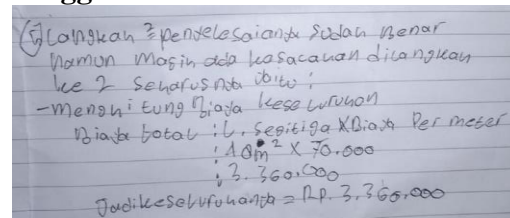 ⑤ Langkah ² penyelesaianya sudah benar
Namun masih ada kesalahan dilangkah
ke 2 seharusnya itu :
- menghitung Biaya keseluruhan
Biaya total : L. segitiga X Biaya Per meter
: 48 m² X 70.000
: 3.360.000
Jadi keseluruhanya = Rp. 3.360.000